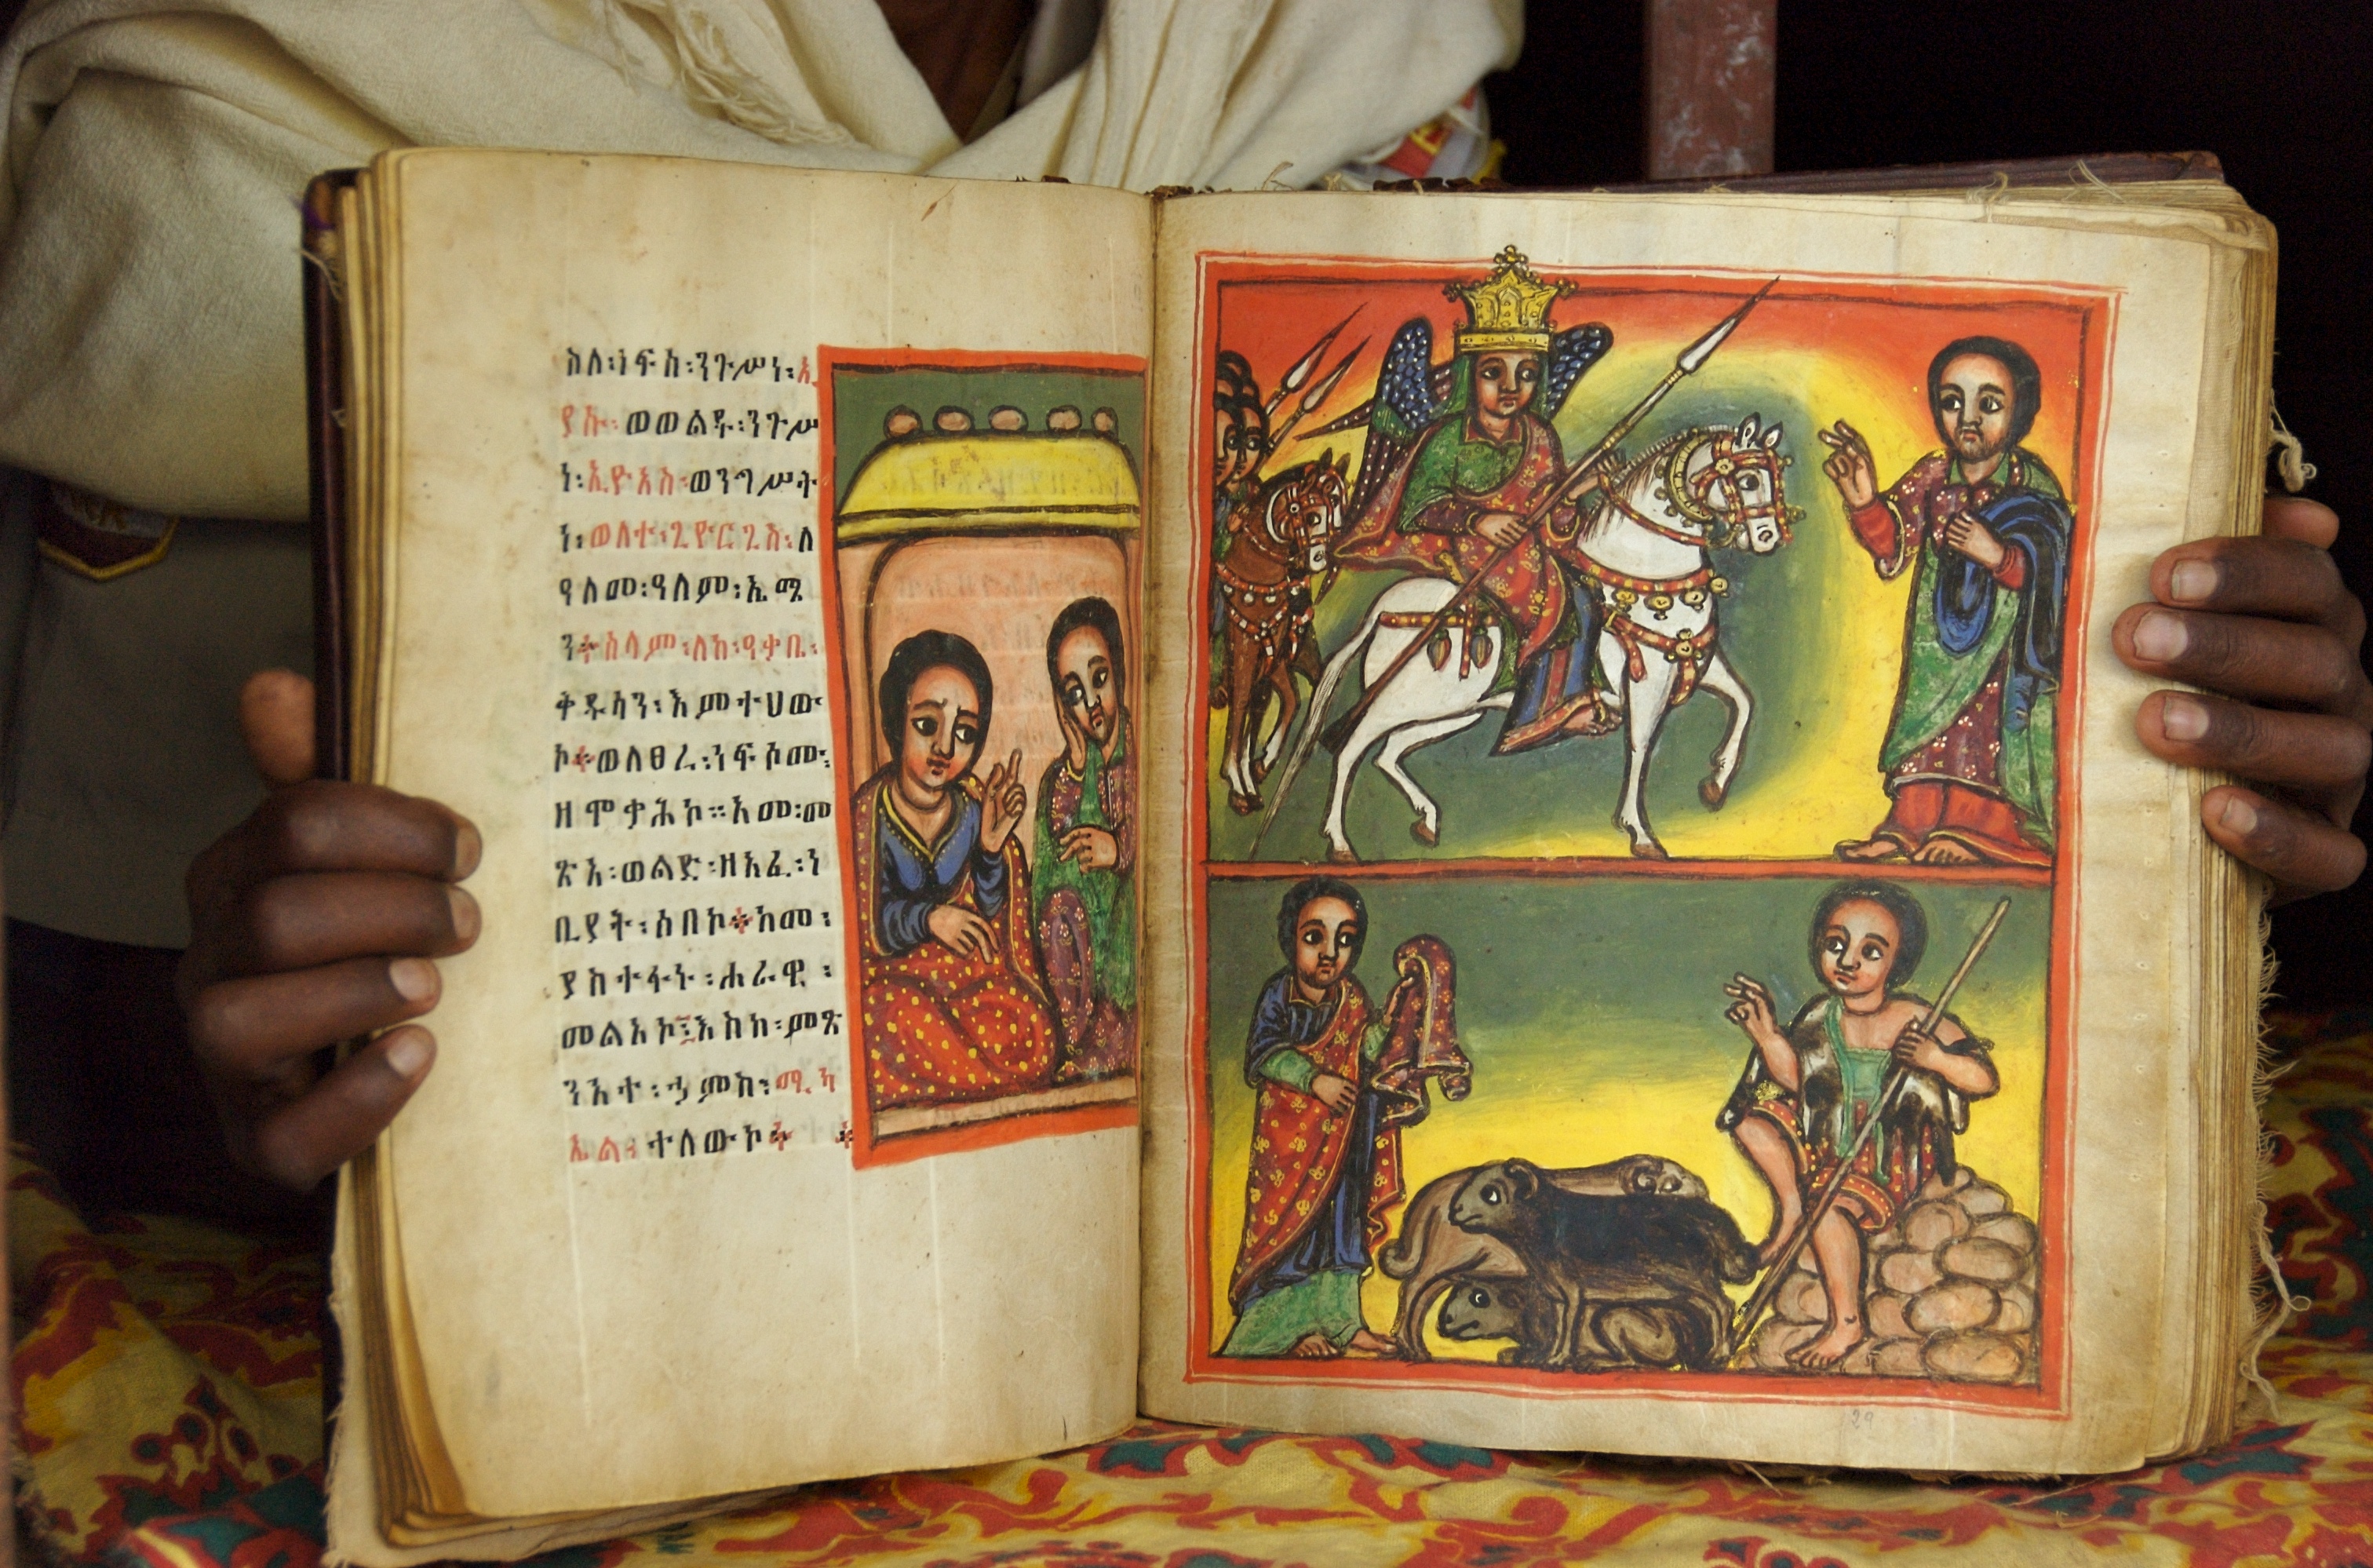 ስለ፡ነፍስ፡ንጉሥነ፡ኢ
ያሱ፡ወወልዱ፡ንጉሥ
ነ፡ኢዮአስ፡ወንግሥት
ነ፡ወለተ፡ጊዮርጊስ፡ለ
ዓለመ፡ዓለም፡ኢሜ
ን፡ሰላም፡ለከ፡ዓቃቤ፡
ቅዱሳን፡እምተህው
ኮ፡ወለፀረ፡ነፍሶሙ፡
ዘሞቃሕኮ።አመ፡መ
ጽአ፡ወልድ፡ዘአፈ፡ነ
ቢያት፡ሰበኮ፡ከመ፡
ሐራዊ፡
መልአኮ፤እስከ፡ምጽ
ሚካ
ኤል፡ተለውኮ፡
29